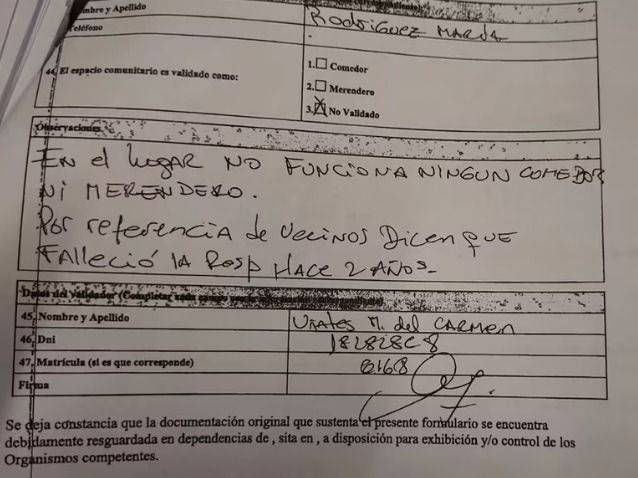 mbre y Apellido
Rodriguez MARIA
eléfono
-
44, El espacio comunitario es validado como:
1. Comedor
2. Merendero
3. No Validado
Observaciones
EN el lugar NO FUNCIONA NINGUN COMEDOR
NI MERENDERO.
Por referencia de vecinos Dicen QUE
FAlleció lA Resp HACE 2 AÑOS-
Datos del validador (Completar
45, Nombre y Apellido
M. del CARMEN
46, Dni
47, Matrícula (si es que corresponde)
6168
Firma
Se deja constancia que la documentación original que sustenta el presente formulario se encuentra
debidamente resguardada en dependencias de , sita en , a disposición para exhibición y/o control de los
Organismos competentes.